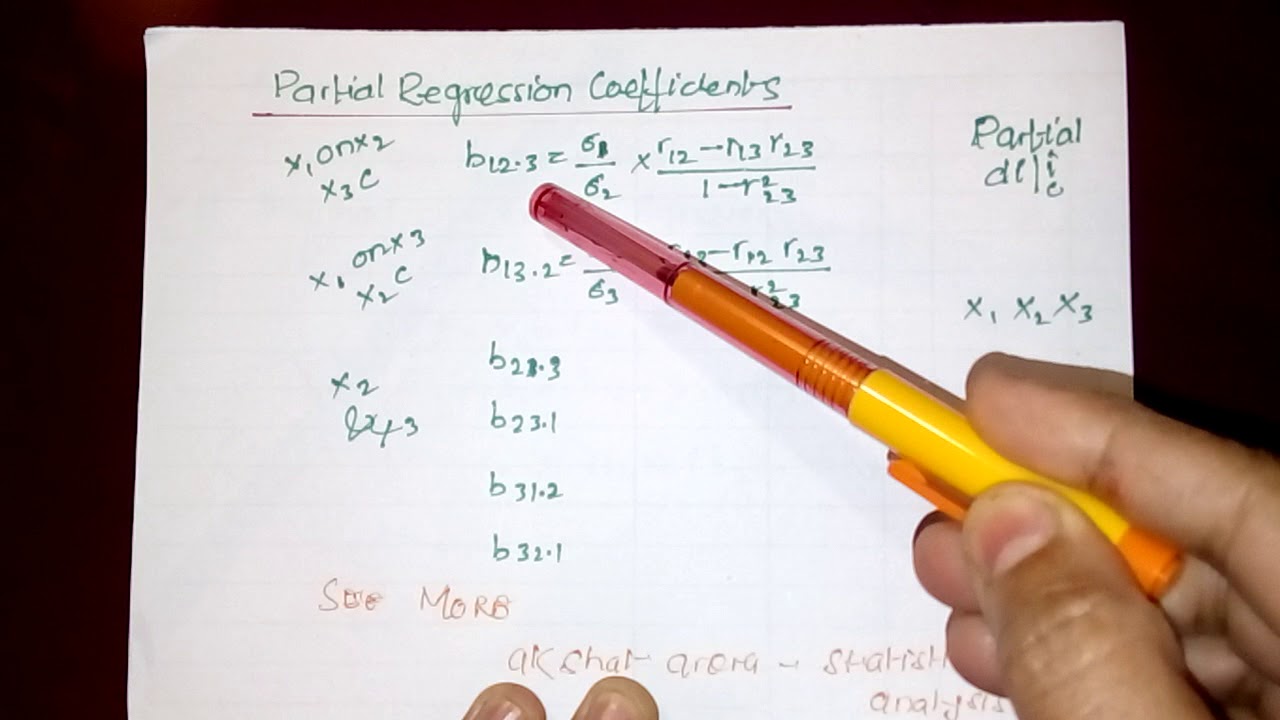 Partial Regression Coefficients
x₁ on x₂
x₃ c
b₁₂.₃ = σ₁/σ₂ × (r₁₂ − r₁₃ r₂₃)/(1 − r²₂₃)
Partial
x₁ on x₃
x₂ c
b₁₃.₂ = /σ₃ − r₁₂ r₂₃ / r²₂₃
x₁ x₂ x₃
x₂
b₂₁.₃
b₂₃.₁
b₃₁.₂
b₃₂.₁
SEE MORE
akshat arora – statist
analysis